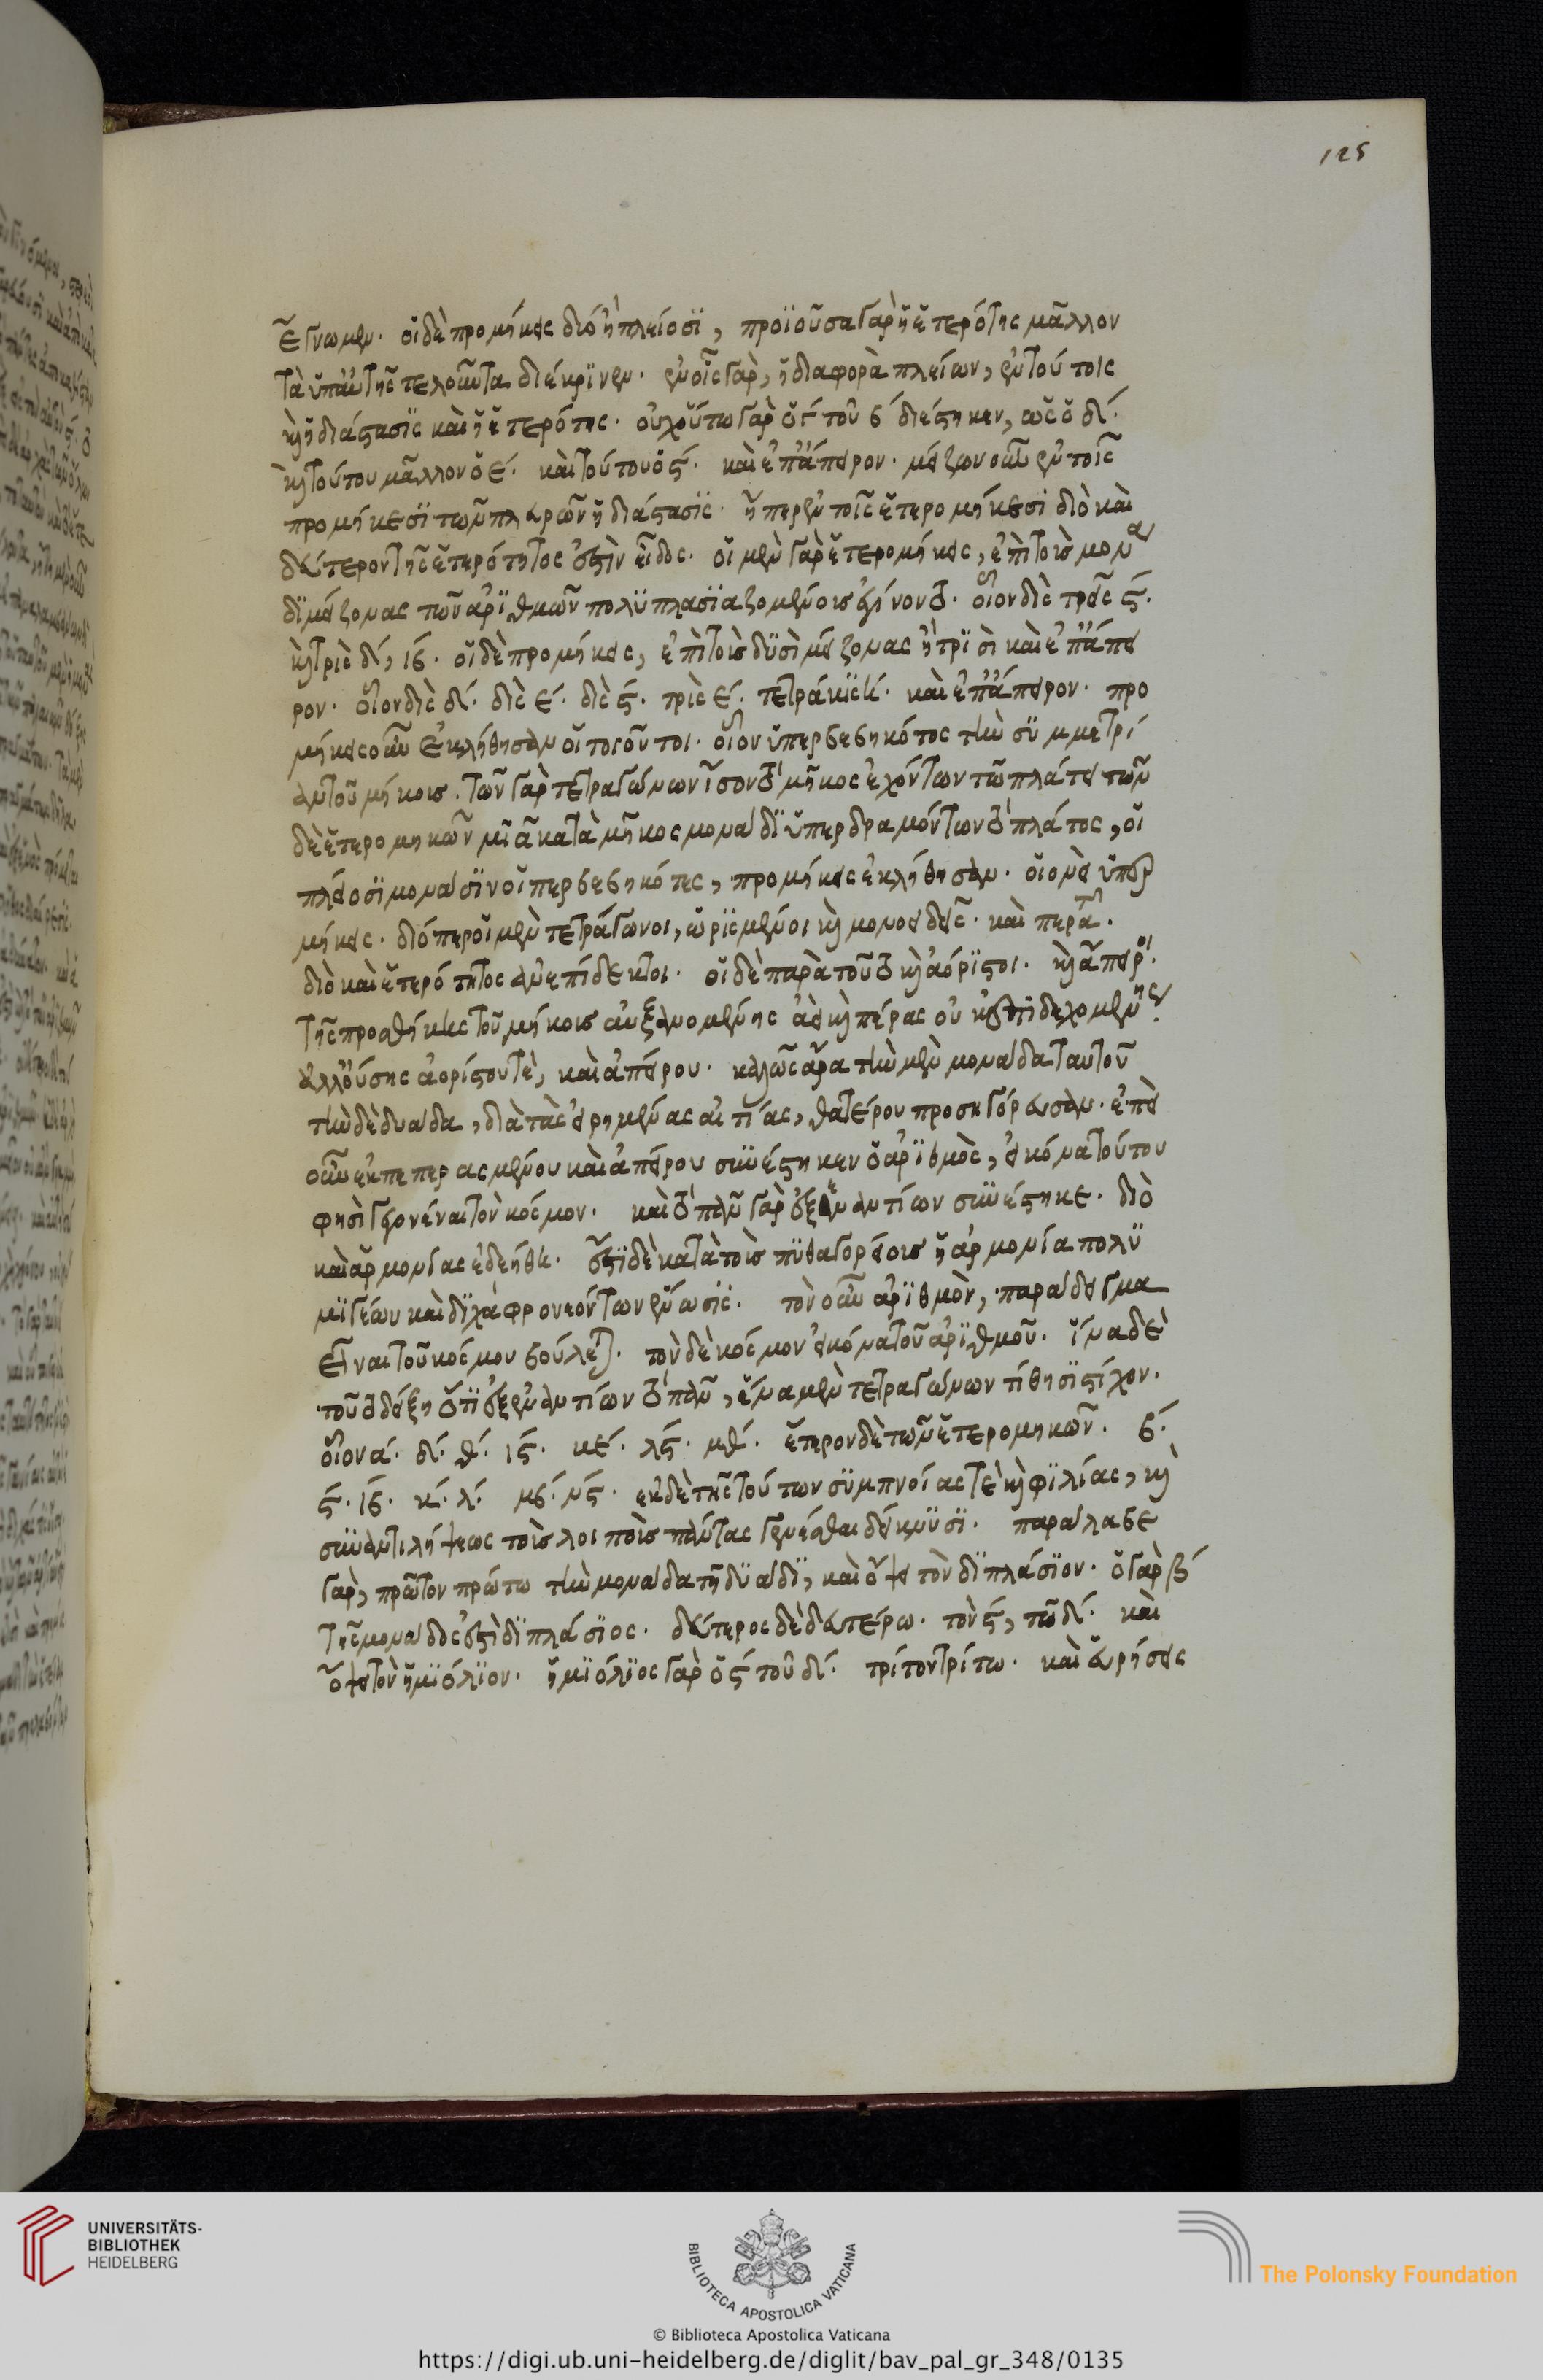 125
ἔγνωμεν. οἱ δὲ προμήκεις δυσὶν ἢ πλείοσι, προϊοῦσα γὰρ ἡ ἑτερότης μᾶλλον
τὰ ὑπ' αὐτῆς τελοῦντα διέκρινεν. ἐν οἷς γὰρ, ἡ διαφορὰ πλείων, ἐν τούτοις
καὶ ἡ διάστασις καὶ ἡ ἑτερότης. οὐχ οὕτω γὰρ ὁ γ τοῦ β διέστηκεν, ὡς ὁ δ.
καὶ τούτου μᾶλλον ὁ ε. καὶ τούτου ὁ ς. καὶ ἐπ' ἄπειρον. μείζων οὖν ἐν τοῖς
προμήκεσι τῶν πλευρῶν ἡ διάστασις. ἤπερ ἐν τοῖς ἑτερομήκεσι διὸ καὶ
δεύτερον τῆς ἑτερότητος ἐστὶν εἶδος. οἱ μὲν γὰρ ἑτερομήκεις, ἐπὶ τοὺς μονά
δι μείζονας τῶν ἀριθμῶν πολυπλασιαζομένους γίνονται. οἷον δὶς τρεῖς ς.
καὶ τρὶς δ, ιβ. οἱ δὲ προμήκεις, ἐπὶ τοὺς δυσὶ μείζονας ἢ τρισὶ καὶ ἐπ' ἄπει
ρον. οἷον δὶς δ. δὶς ε. δὶς ς. τρὶς ε. τετράκις . καὶ ἐπ' ἄπειρον. προ
μήκεις οὖν ἐκλήθησαν οἱ τοιοῦτοι. οἷον ὑπερβεβηκότος τὴν συμμετρί
αν τοῦ μήκους. τῶν γὰρ τετραγώνων ἴσον τὸ μῆκος ἐχόντων τῷ πλάτει τῶν
δὲ ἑτερομηκῶν μιᾷ κατὰ μῆκος μονάδι ὑπερδραμόντων τὸ πλάτος, οἱ
πλείοσι μονάσιν οἱ περβεβηκότες, προμήκεις ἐκλήθησαν. οἱονεὶ ὑπὲρ
μήκεις. διόπερ οἱ μὲν τετράγωνοι, ὡρισμένοι καὶ μονοειδεῖς. καὶ περατ.
διὸ καὶ ἑτερότητος ἀνεπίδεκτοι. οἱ δὲ παρὰ τούτους καὶ ἀόριστοι. καὶ ἄπειροι.
τῆς προσθήκης τοῦ μήκους αὐξανομένης ἀεὶ καὶ πέρας οὐκ ἐπιδεχομένης.
ἀλλ' οὔσης ἀορίστου τὲ, καὶ ἀπείρου. καλῶς ἄρα τὴν μὲν μονάδα ταυτοῦ
τὴν δὲ δυάδα, διὰ τὰς εἰρημένας αἰτίας, θατέρου προσηγόρευσαν. ἐπεὶ
οὖν ἐκ πεπερασμένου καὶ ἀπείρου συνέστηκεν ὁ ἀριθμὸς, εἰκόνα τούτου
φησὶ γεγονέναι τὸν κόσμον. καὶ τὸ πᾶν γὰρ ἐξ ἐναντίων συνέστηκε. διὸ
καὶ ἁρμονίας ἐδεήθη. ἔστι δὲ κατὰ τοὺς πυθαγορείους ἡ ἁρμονία πολυ
μιγέων καὶ δίχα φρονεόντων ἕνωσις. τὸν οὖν ἀριθμὸν, παράδειγμα
εἶναι τοῦ κόσμου βούλεται. τὸν δὲ κόσμον εἰκόνα τοῦ ἀριθμοῦ. ἵνα δὲ
τοῦτο δείξῃ ὅτι ἐξ ἐναντίων τὸ πᾶν, ἕνα μὲν τετραγώνων τίθησι στίχον.
οἷον α. δ. θ. ις. κε. λς. μθ. ἕτερον δὲ τῶν ἑτερομηκῶν. β.
ς. ιβ. κ. λ. μβ. νς. ἐκ δὲ τῆς τούτων συμπνοίας τὲ καὶ φιλίας, καὶ
συναντιλήψεως τοὺς λοιποὺς πάντας γενέσθαι δείκνυσι. παράλαβε
γὰρ, πρῶτον πρώτω τὴν μονάδα τῇ δυάδι, καὶ ὄψει τὸν διπλάσιον. ὁ γὰρ β
τῆς μονάδος ἐστὶ διπλάσιος. δεύτερος δὲ δευτέρω. τὸν ς, τῷ δ. καὶ
ὄψει τὸν ἡμιόλιον. ἡμιόλιος γὰρ ὁ ς τοῦ δ. τρίτον τρίτω. καὶ εὑρήσεις
UNIVERSITÄTS-
BIBLIOTHEK
HEIDELBERG
BIBLIOTECA APOSTOLICA VATICANA
The Polonsky Foundation
© Biblioteca Apostolica Vaticana
https://digi.ub.uni-heidelberg.de/diglit/bav_pal_gr_348/0135